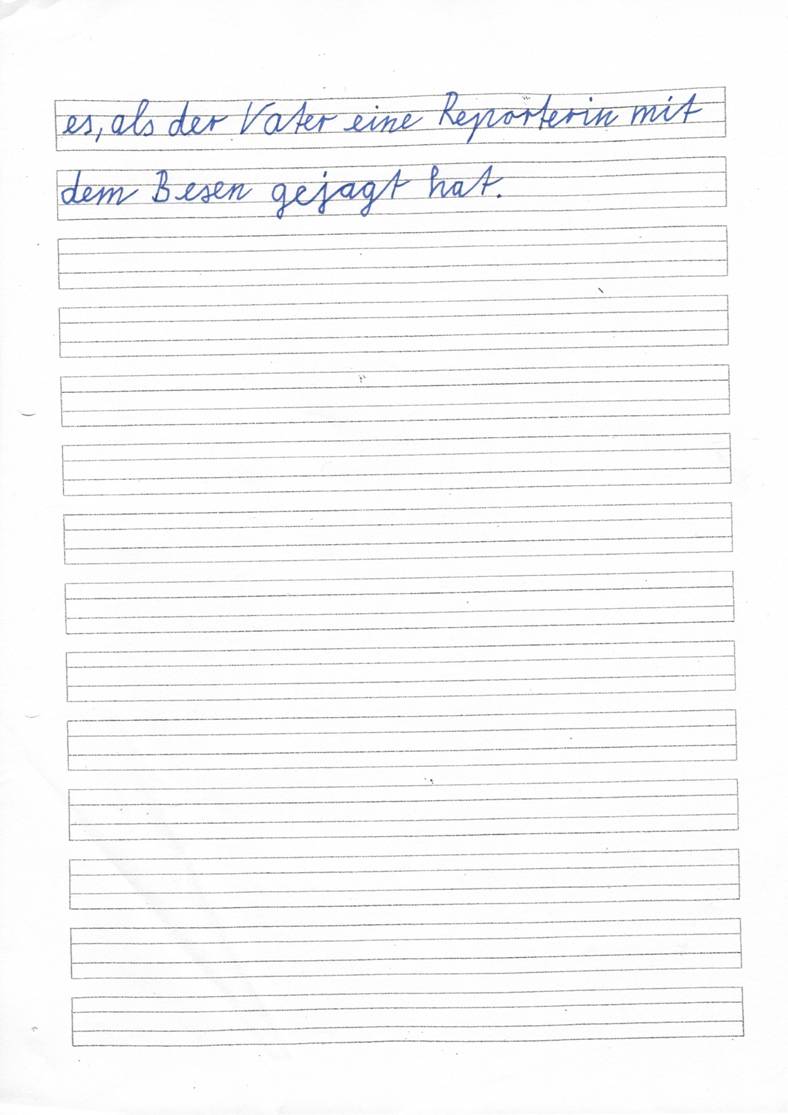 es, als der Vater eine Reporterin mit
dem Besen gejagt hat.